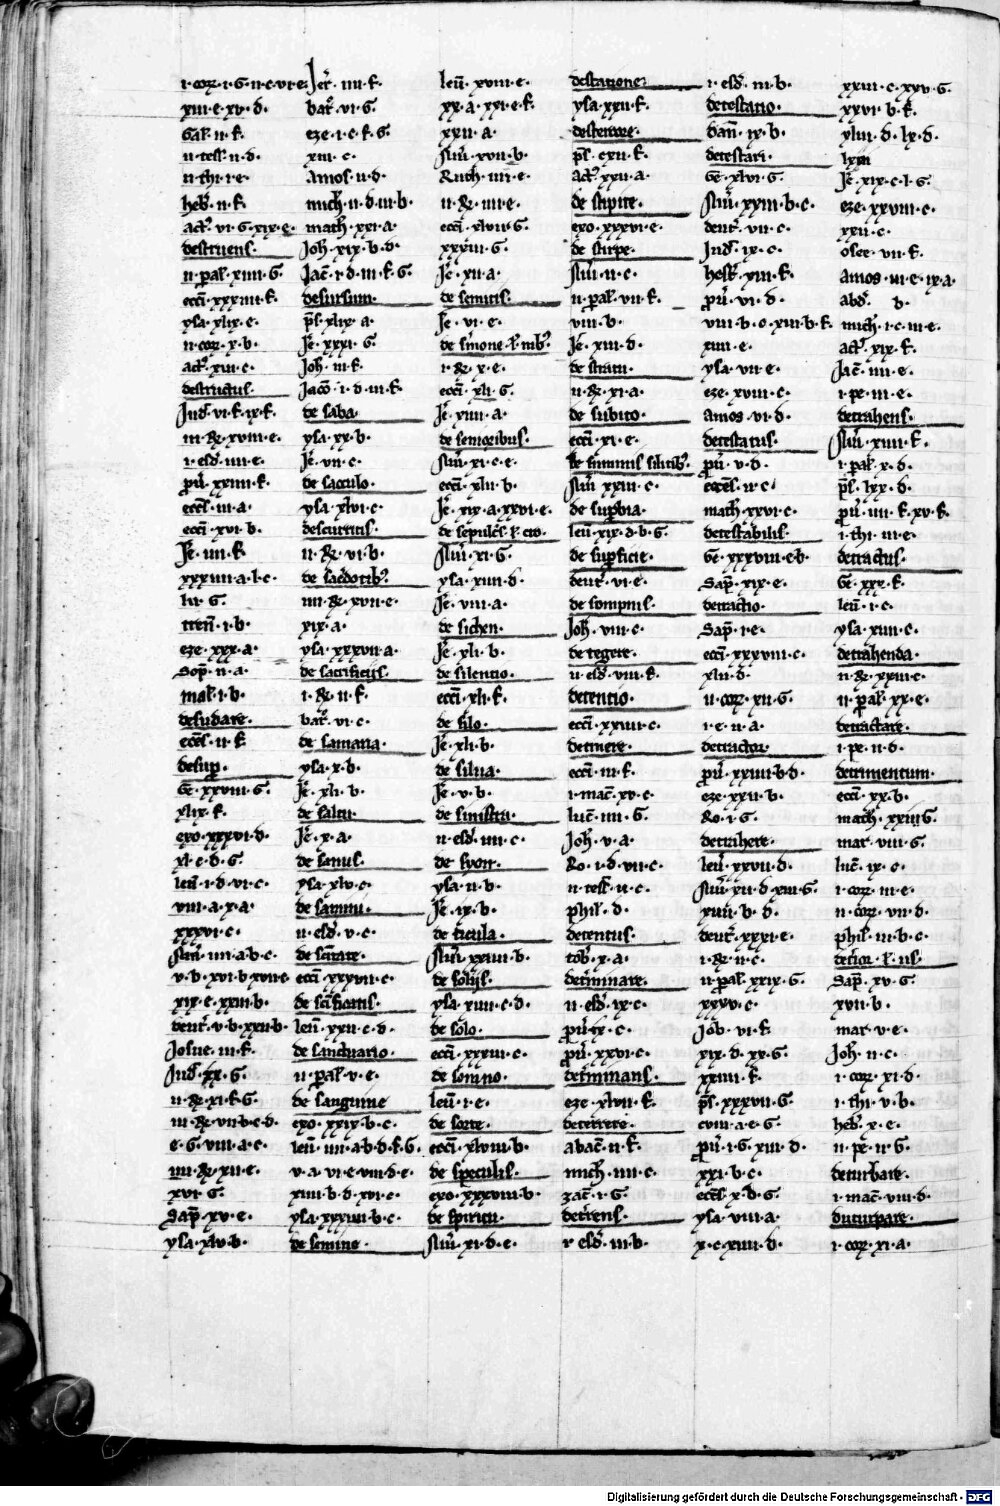 i · cor · i · G · ii · c · vi · e ·
xiii · e · xv · d ·
Gal · ii · f ·
ii · tess · ii · d ·
ii · thi · i · e ·
heb · ii · f ·
act · vi · G · xix · e ·
destruens ·
ii · pal · xiiii · G ·
ecci · xxxiiii · f ·
ysa · xlix · c ·
ii · cor · x · b ·
act · xiii · c ·
destructus ·
Jud · vi · f · ix · f ·
iii · R · xviii · e ·
i · esd · iiii · e ·
pu · xxiiii · f ·
eccs · iii · a ·
ecci · xvi · b ·
Je · iiii · f
xxxiiii · a · b · c ·
lii · G ·
tren · i · b ·
eze · xxx · a ·
Sop · ii · a ·
mal · i · b ·
desudare ·
eccs · ii · f
desup ·
Ge · xxviii · G ·
xlix · f ·
exo · xxxvi · d ·
xl · c · d · G ·
leu · i · d · vi · c ·
viii · a · x · a ·
xxxvi · c ·
Nu · iiii · a · b · c ·
v · b · xvi · b · xvii · e
xix · e · xxiii · b ·
deut · v · b · xxii · b ·
Josue · iii · f ·
Jud · xx · G ·
ii · R · xi · f · G ·
iii · R · vii · b · c · d ·
e · G · viii · a · c ·
iiii · R · xii · e ·
xvi · G ·
Sap · xv · e ·
ysa · xlv · b ·
Jer · iiii · f ·
bar · vi · G ·
eze · i · c · f · G ·
xiii · c ·
Amos · ii · d ·
mich · ii · d · iii · b ·
math · xxi · a ·
Joh · xix · b · d ·
Jac · i · d · iii · f · G ·
desursum ·
ps · xlix · a ·
Je · xxxi · G ·
Joh · iii · f ·
Jaco · i · d · iii · f ·
de saba ·
ysa · xx · b ·
Je · vii · c ·
de sacculo ·
ysa · xlvi · c ·
descurritis ·
ii · R · vi · b ·
de sacdotib ·
iiii · R · xvii · e ·
xix · a ·
ysa · xxxvii · a ·
de sacrificijs ·
i · R · ii · f ·
bar · vi · c ·
de samaria ·
ysa · x · b ·
Je · xli · b ·
de saltu ·
Je · x · a ·
de sanus ·
ysa · xlv · c ·
de sammi ·
ii · esd · v · c ·
de scitate ·
ecci · xxxviii · c ·
de scificatis ·
leu · xxii · c · d ·
de sanctuario ·
ii · pal · v · e ·
de sanguine
exo · xxix · b · c ·
leu · iiii · a · b · d · f · G ·
v · a · vi · e · viii · d · e ·
xiiii · b · d · xvi · c ·
ysa · xxxiiii · b · c ·
de semine ·
leu · xviii · e ·
xx · a · xxi · e · f ·
xxii · a ·
Nu · xvii · b ·
Ruth · iiii · e ·
ii · R · iiii · e ·
ecci · xlvii · G ·
xxxiii · G ·
Je · xii · a ·
de semitis ·
Je · vi · e ·
de smone · l · nib ·
i · R · x · e ·
ecci · xli · G ·
Je · xiiii · a ·
de senioribus ·
Nu · xi · c · e ·
ecci · xlii · b ·
Je · xix · a · xxvi · e ·
de sepulcs · l · cro ·
Nu · xi · G ·
ysa · xiiii · d ·
Je · viii · a ·
de sichen ·
Je · xli · b ·
de silencio ·
ecci · xli · f ·
de silo ·
Je · xli · b ·
de silua ·
Je · v · b ·
de sinistru ·
ii · esd · iiii · c ·
de syon ·
ysa · ii · b ·
Je · ix · b ·
de sicula ·
Nu · xxiiii · b ·
de solijs ·
ysa · xiiii · c · d ·
de solo ·
ecci · xxxiii · c ·
de somno ·
leu · i · e ·
de sorte ·
ecci · xlviii · b ·
de speculis ·
exo · xxxviii · b ·
de spiritu ·
Nu · xi · d · e ·
destacione ·
ysa · xxii · f ·
desternere ·
ps · cxii · f ·
act · xxii · a ·
de stipite ·
exo · xxxvi · e ·
de stirpe ·
Nu · ii · c ·
ii · pal · vii · f ·
viii · b ·
Je · xiii · d ·
de stratu ·
ii · R · xi · a ·
de subito ·
ecci · xi · e ·
de summis silitib ·
Nu · xxiii · c ·
de supbia ·
leu · xix · a · b · G ·
de supficie ·
deut · vi · e ·
de sompnis ·
Joh · viii · c ·
de tegere ·
ii · esd · viii · f ·
detencio ·
ecci · xxiiii · c ·
detinere ·
ecci · iii · f ·
i · mac · xv · c ·
luc · iiii · G ·
Joh · v · a ·
Ro · i · d · vii · c ·
ii · tess · ii · c ·
phil · d ·
detentus ·
tob · x · a ·
determinare ·
ii · esd · ix · c ·
pu · ix · c ·
pu · xxvi · c ·
determinans ·
eze · xlvii · f ·
deterrere ·
abac · ii · f ·
mich · iiii · c ·
zac · i · G ·
deterens ·
i · esd · iii · b ·
i · esd · iii · b ·
detestatio ·
dan · ix · b ·
detestari ·
Ge · xlvi · G ·
Nu · xxiii · b · c ·
deut · vii · c ·
Jud · ix · c ·
hest · xiii · f ·
pu · vi · d ·
viii · b · c · xiii · b · f
xiiii · e ·
ysa · vii · e ·
eze · xviii · c ·
amos · vi · d ·
detestatus ·
pu · v · d ·
eccs · ii · c
math · xxvi · c ·
detestabilis ·
Ge · xxxviii · c · b ·
Sap · xix · e ·
detractio ·
Sap · i · e ·
ecci · xxxviii · c ·
xlii · d ·
ii · cor · xii · G ·
i · e · ii · a ·
detractor ·
pu · xxiiii · b · d ·
eze · xxii · b ·
Ro · i · G ·
detrahere ·
leu · xxvii · d ·
Nu · xii · d · xiii · G ·
xxiii · b · d ·
deut · xxxi · e ·
i · R · ii · c ·
ii · pal · xxix · G ·
xxxv · c ·
Job · vi · f
xix · d · xx · G ·
xxiiii · f ·
ps · xxxvii · G ·
cviii · a · e · G ·
pu · i · G · xiii · d ·
xxi · b · c ·
eccs · x · b · G ·
ysa · viii · a ·
x · c · xiiii · d ·
xxiii · c · xxv · G ·
xxvi · b · f ·
xliii · d · lx · d ·
lxiii
Je · xix · c · l · G ·
eze · xxviii · c ·
xxii · c ·
osee · vii · f ·
amos · iii · e · ix · a ·
abd · b ·
mich · i · c · iii · e ·
act · xix · f ·
Jac · iiii · e ·
i · pe · iii · e ·
detrahens ·
Nu · xiiii · f ·
i · pal · x · d ·
ps · lxx · d ·
pu · iiii · f · xv · f ·
i · thi · iii · e ·
detractus ·
Ge · xxx · f ·
leu · i · c ·
ysa · xiiii · c ·
detrahenda ·
ii · R · xxiii · c ·
ii · pal · xx · e ·
detractare ·
i · pe · ii · d ·
detrimentum ·
ecci · xx · b ·
math · xxiii G ·
mar · viii · G ·
luc · ix · c ·
i · cor · iii · e ·
ii · cor · vii · d ·
phil · iii · b · c ·
detior · l · us ·
Sap · xv · G ·
xvii · b ·
mar · v · e ·
Joh · ii · c ·
i · cor · xi · d ·
i · thi · v · b ·
heb · x · e ·
ii · pe · ii · G ·
deturbare ·
i · mac · viii · d ·
duturpare ·
i · cor · xi · a ·
Digitalisierung gefördert durch die Deutsche Forschungsgemeinschaft - DFG